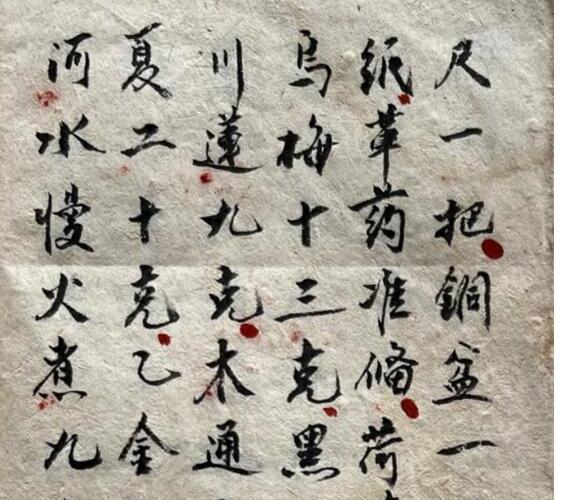 尺一把銅盆一
纸革药准備荷
烏梅十三克黑
川蓮九克木通
夏二十克乙金
河水慢火煮九